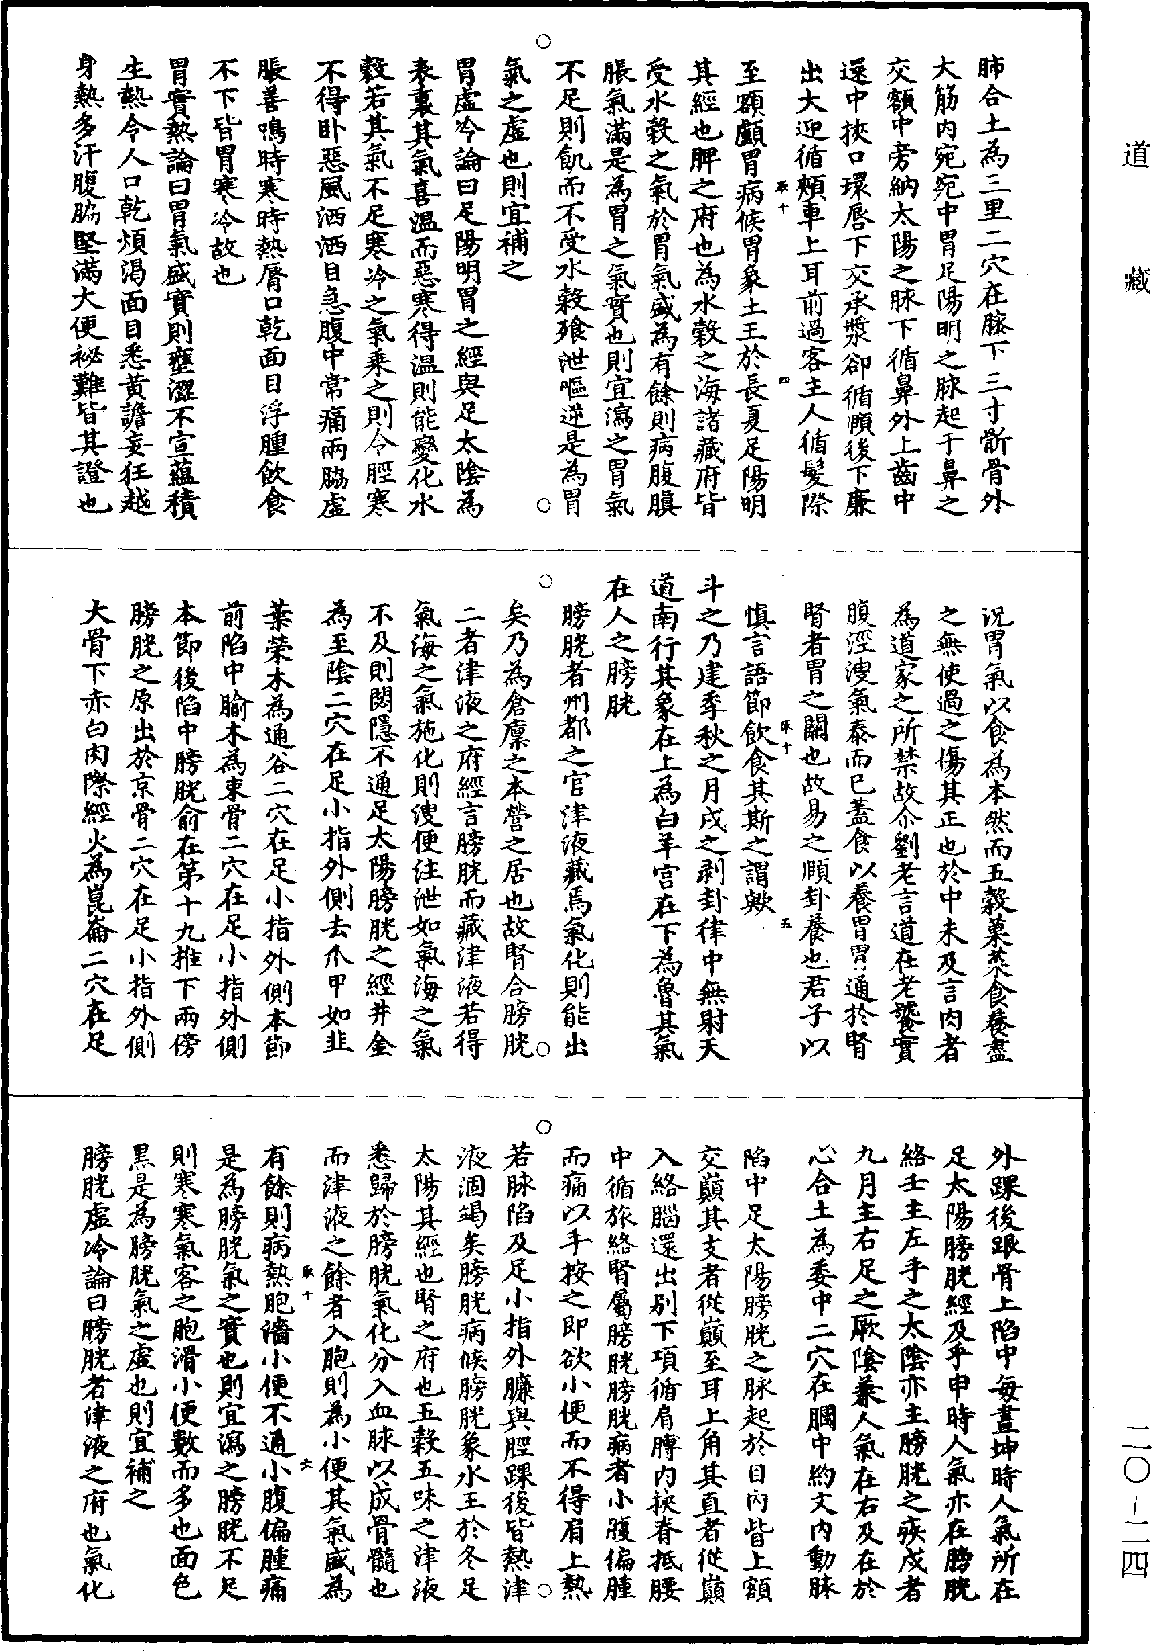 道藏
肺合土為三里二穴在膝下三寸䯒骨外
大筋内宛宛中胃足陽明之脉起于鼻之
交頞中旁納太陽之脉下循鼻外上齒中
還中挾口環唇下交承漿卻循頤後下廉
出大迎循頰車上耳前過客主人循髮際
至額顱胃病候胃象土王於長夏足陽明
其經也脾之府也為水穀之海諸藏府皆
受水穀之氣於胃氣盛為有餘則病腹䐜
脹氣滿是為胃之氣實也則宜瀉之胃氣
不足則飢而不受水穀飱泄嘔逆是為胃
氣之虛也則宜補之
胃虛冷論曰足陽明胃之經與足太陰為
表裏其氣喜溫而惡寒得溫則能變化水
穀若其氣不足寒冷之氣乘之則令脛寒
不得卧惡風洒洒目急腹中常痛兩脇虛
脹善鳴時寒時熱脣口乾面目浮腫飲食
不下皆胃寒冷故也
胃實熱論曰胃氣盛實則壅澀不宣蘊積
生熱令人口乾煩渴面目悉黃譫妄狂越
身熱多汗腹脇堅滿大便祕難皆其證也
況胃氣以食為本然而五穀菓菜食養盡
之無使過之傷其正也於中未及言肉者
為道家之所禁故介劉老言道在老饕實
腹溼溲氣泰而已蓋食以養胃胃通於腎
腎者胃之關也故易之頤卦養也君子以
慎言語節飲食其斯之謂歟
斗之乃建季秋之月戌之剥卦律中無射天
道南行其象在上為白羊宮在下為魯其氣
在人之膀胱
膀胱者州都之官津液藏焉氣化則能出
矣乃為倉廩之本營之居也故腎合膀胱
二者津液之府經言膀胱而藏津液若得
氣海之氣施化則溲便注泄如氣海之氣
不及則閟隱不通足太陽膀胱之經井金
為至陰二穴在足小指外側去爪甲如韭
葉榮水為通谷二穴在足小指外側本節
前陷中腧木為束骨二穴在足小指外側
本節後陷中膀胱俞在第十九推下兩傍
膀胱之原出於京骨二穴在足小指外側
大骨下赤白肉際經火為崑崙二穴在足
外踝後跟骨上陷中每晝坤時人氣所在
足太陽膀胱經及乎申時人氣亦在膀胱
絡壬主左手之太陰亦主膀胱之疾戌者
九月主右足之厥陰兼人氣在右及在於
心合土為委中二穴在膕中約文内動脉
陷中足太陽膀胱之脉起於目内眥上額
交巔其支者從巔至耳上角其直者從巔
入絡腦還出别下項循肩膊内挾脊抵腰
中循旅絡腎屬膀胱膀胱病者小腹徧腫
而痛以手按之即欲小便而不得眉上熱
若脉陷及足小指外臁與脛踝後皆熱津
液涸竭矣膀胱病候膀胱象水王於冬足
太陽其經也腎之府也五穀五味之津液
悉歸於膀胱氣化分入血脉以成骨髓也
而津液之餘者入胞則為小便其氣盛為
有餘則病熱胞濇小便不通小腹偏腫痛
是為膀胱氣之實也則宜瀉之膀胱不足
則寒寒氣客之胞滑小便數而多也面色
黑是為膀胱氣之虛也則宜補之
膀胱虛冷論曰膀胱者津液之府也氣化
二〇-二四